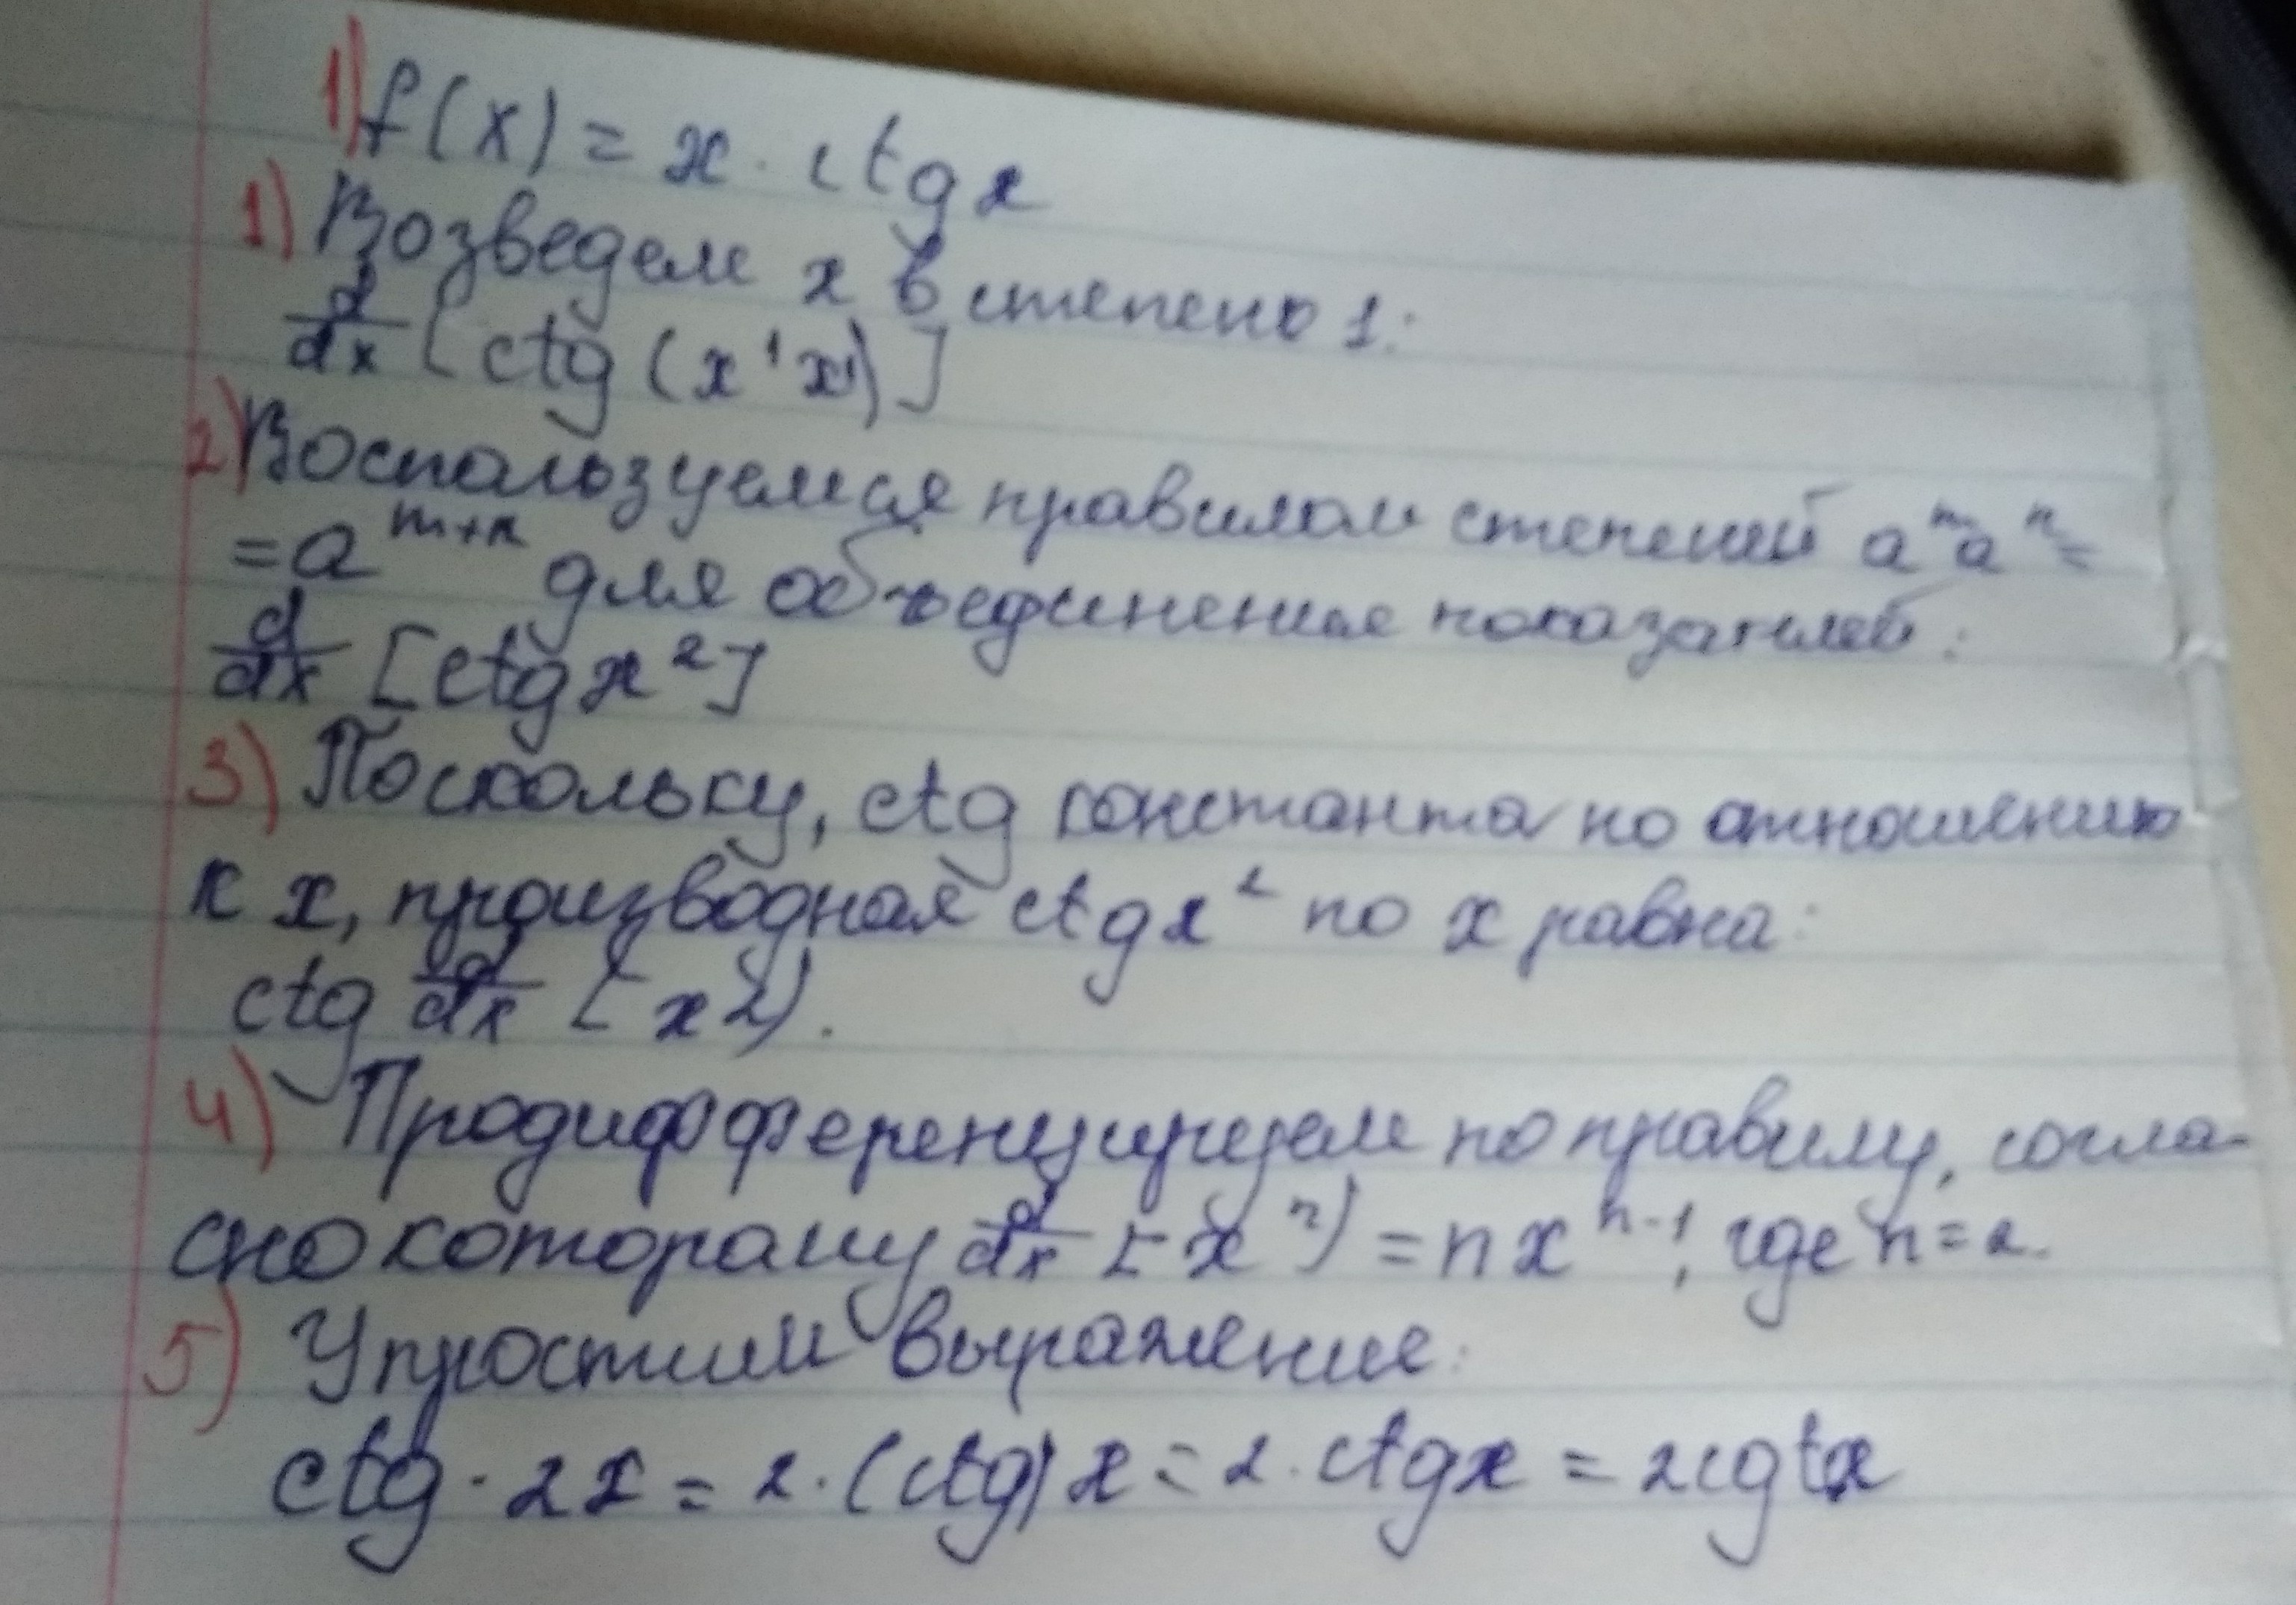 1) f(x) = x · ctg x
1) Возведем x в степень 1:
d/dx [ctg (x¹x¹)]
2) Воспользуемся правилом степеней aᵐaⁿ=
=aᵐ⁺ⁿ для объединения показателей:
d/dx [ctgx²]
3) Поскольку, ctg константа по отношению
к x, производная ctgx² по x равна:
ctg d/dx [x2).
4) Продифференцируем по правилу, согла-
сно которому d/dx [xⁿ) = nxⁿ⁻¹, где n=2.
5) Упростим выражение:
ctg · 2x = 2 · (ctg)x = 2 · ctgx = 2cgtx